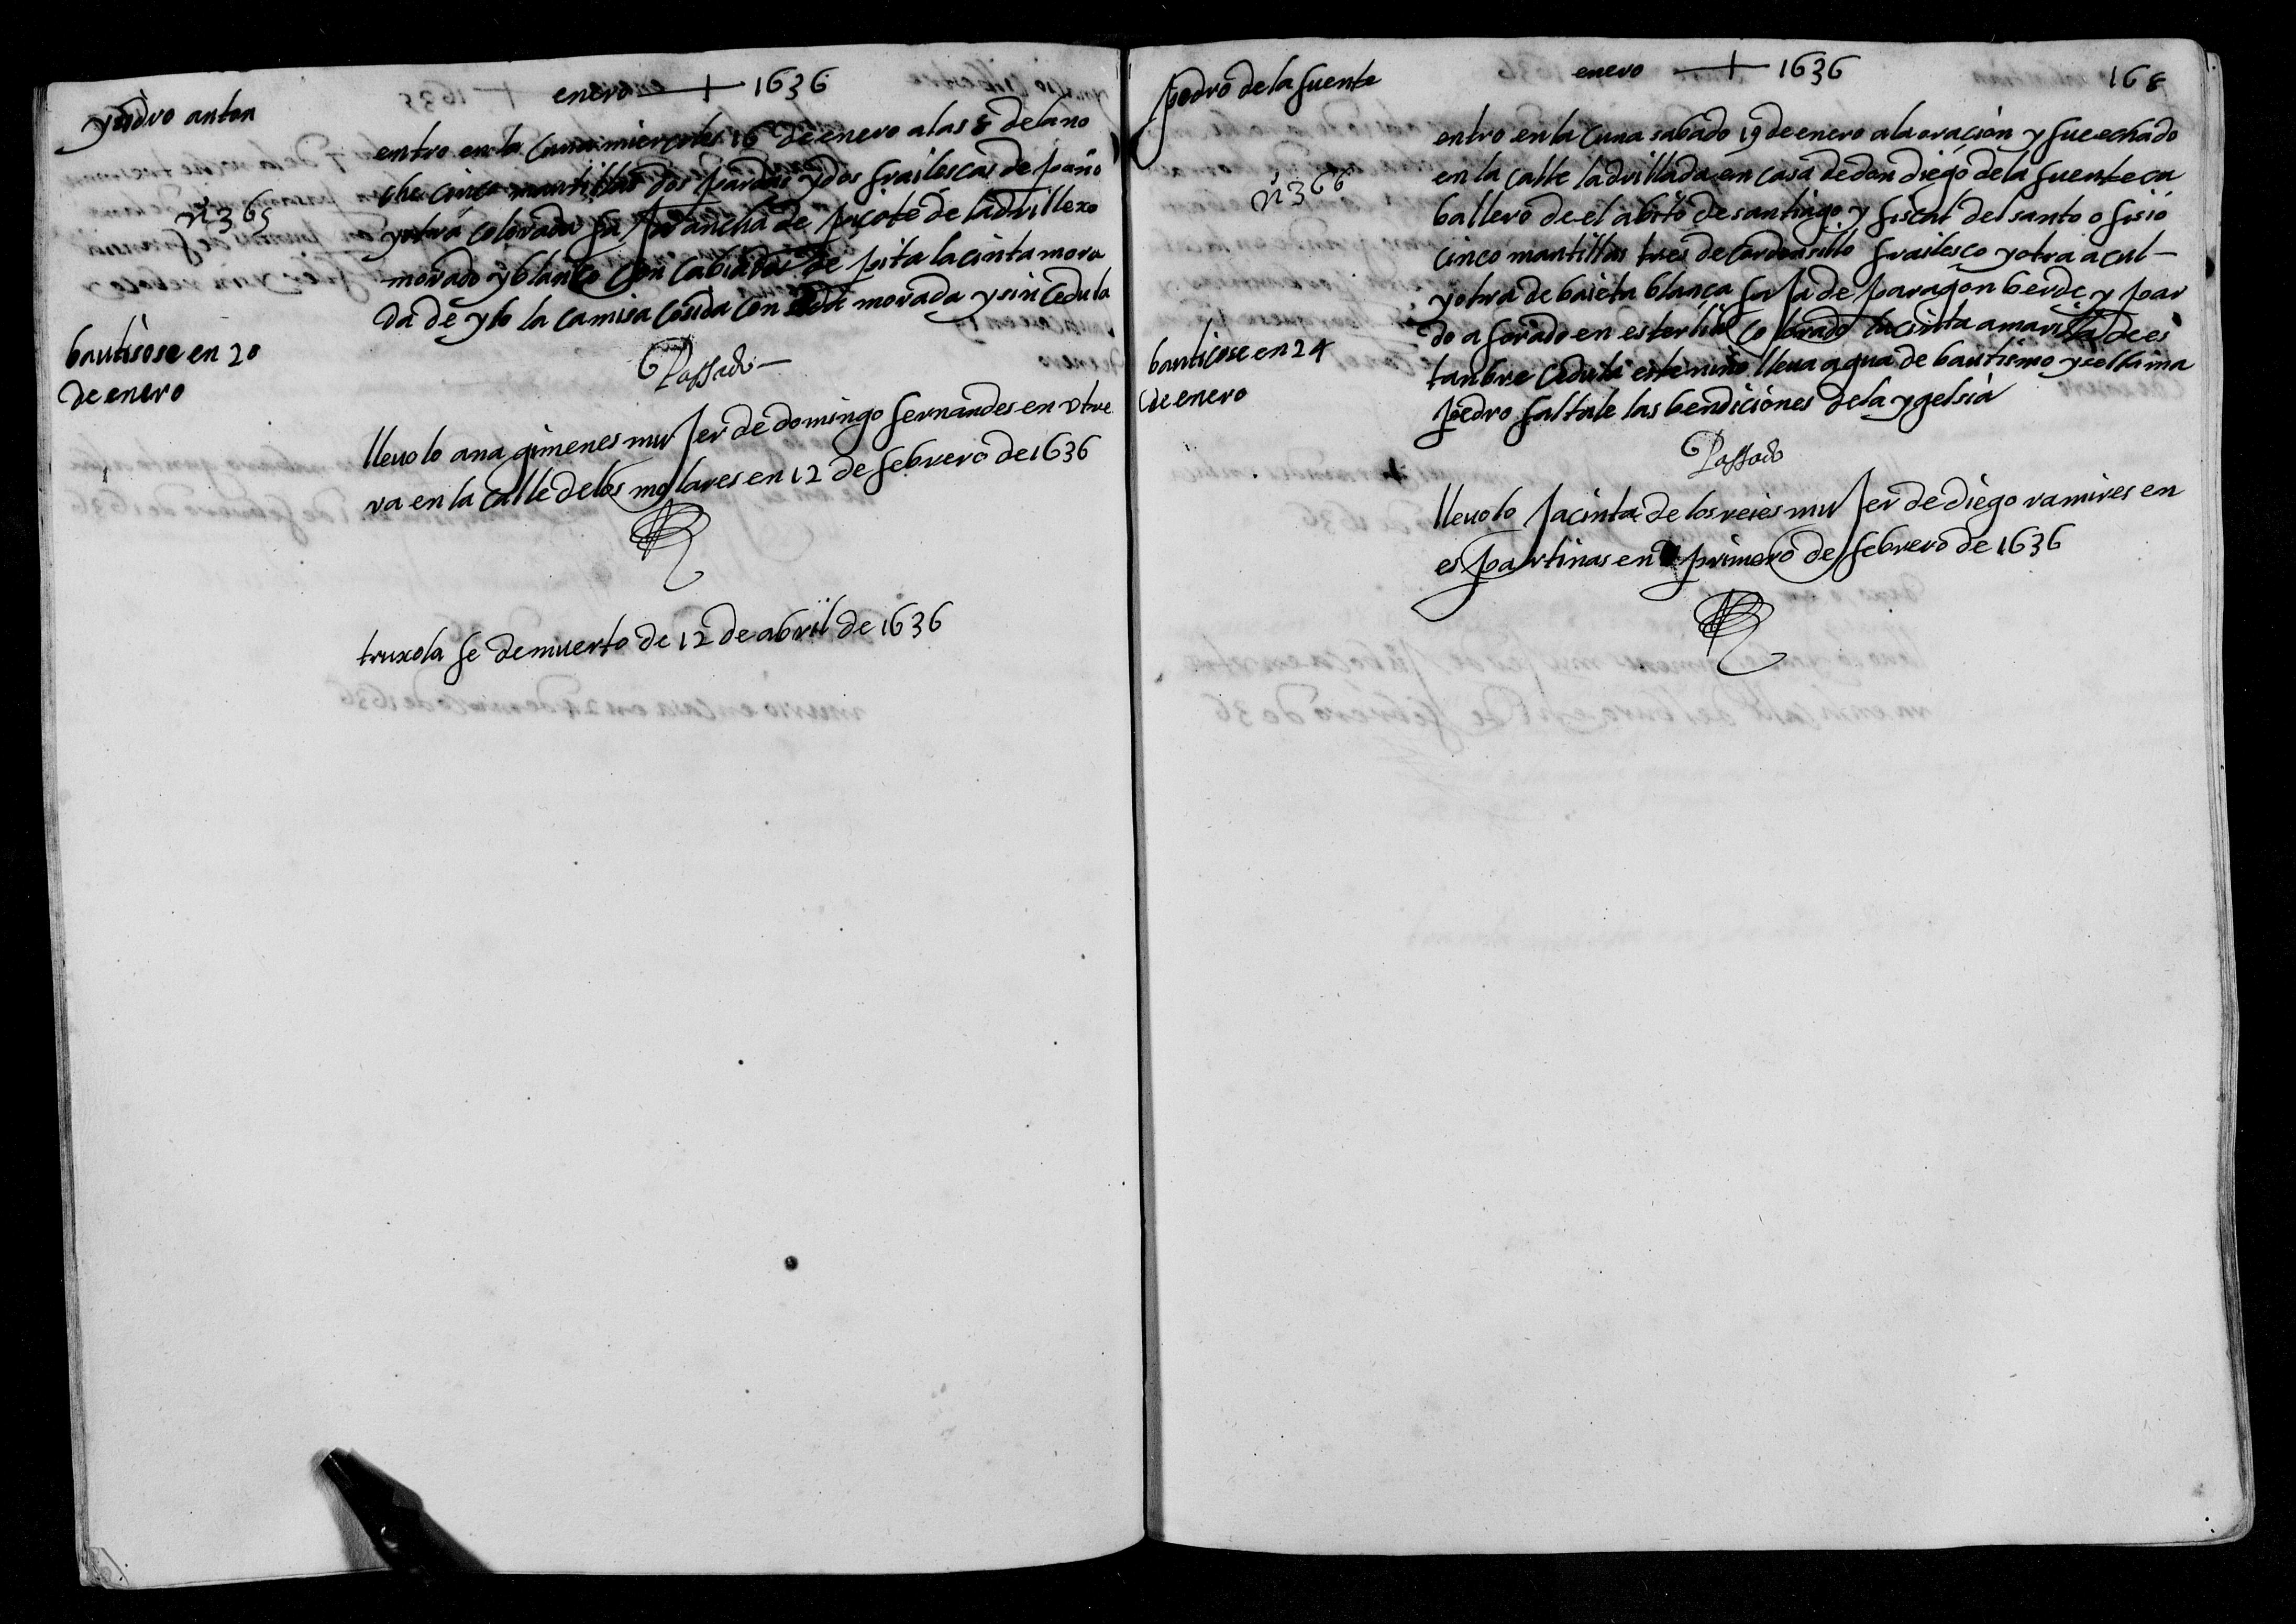 enero + 1636
ysidro anton
nº 365
bautisose en 20
de enero
entro en la cuna miercoles 16 de enero a las 8 de la no
che cinco mantillas dos pardas y dos frailescas de paño
y otra colorada faja ancha de picote de ladrillexo
morado y blanco con cabiados de pita la cinta mora
da de ylo la camisa cosida con seda morada y sin cedula
Passado
lleuolo ana gimenes mujer de domingo fernandes en vtre
ra en la calle de los molares en 12 de febrero de 1636
truxo la fe de muerto de 12 de abril de 1636
enero + 1636
168
pedro de la fuente
nº 366
bauticose en 24
de enero
entro en la cuna sabado 19 de enero a la oracion y fue echado
en la calle ladrillada en casa de don diego de la fuente ca
ballero de el abito de santiago y fiscal del santo ofisio
cinco mantillas tres de cordonsillo frailesco y otra acul
y otra de baieta blanca faja de paragon berde y par
do aforado en esterlin colorado la cinta amarilla de es
tanbre cedula este niño lleua agua de bautismo y se llama
pedro faltale las bendiciones de la ygelsia
Passado
lleuolo jacinta de los reies mujer de diego ramires en
espartinas en primero de febrero de 1636